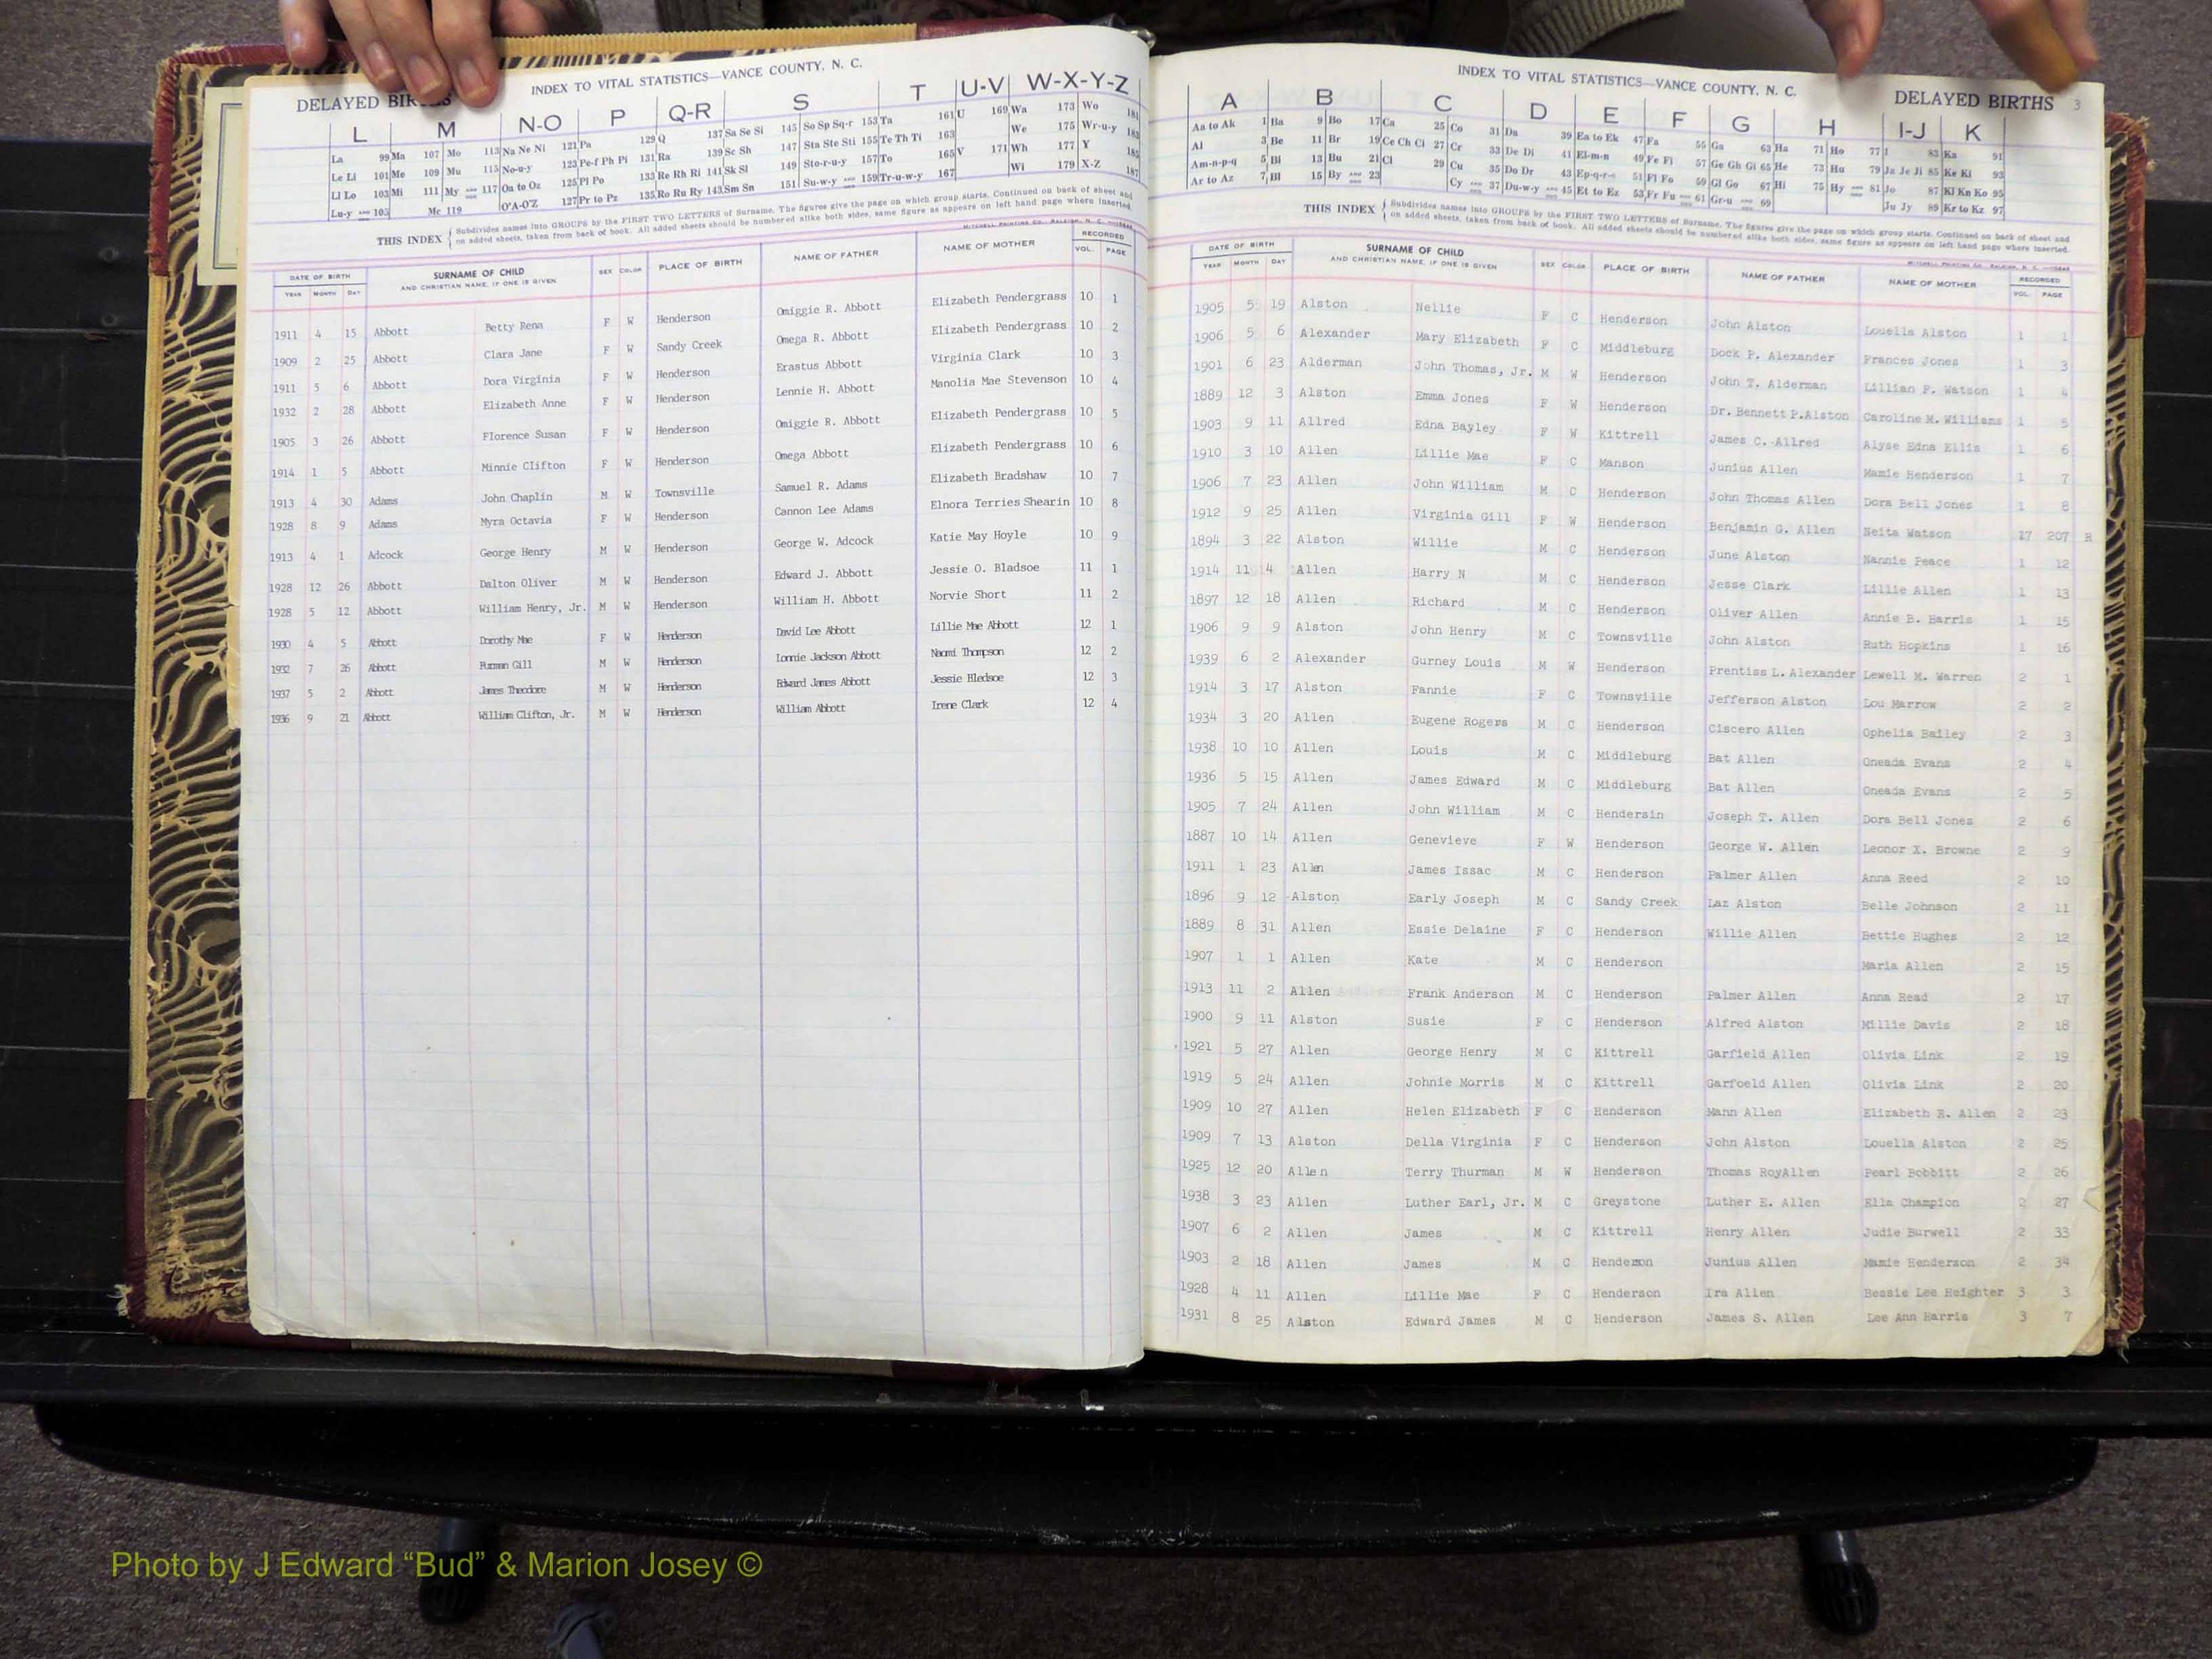 INDEX TO VITAL STATISTICS—VANCE COUNTY, N. C.
DELAYED BIRTHS
L M N-O P Q-R S T U-V W-X-Y-Z
La 99 Ma 107 Mo 113 Na Ne Ni 121 Pa 129 Q 137 Sa Se Si 145 So Sp Sq-r 153 Ta 161 U 169 Wa 173 Wo 181
Le Li 101 Me 109 Mu 115 No-u-y 123 Pe-f Ph Pi 131 Ra 139 Sc Sh 147 Sta Ste Sti 155 Te Th Ti 163 We 175 Wr-u-y 183
Ll Lo 103 Mi 111 My AND 117 Oa to Oz 125 Pl Po 133 Re Rh Ri 141 Sk Sl 149 Sto-r-u-y 157 To 165 V 171 Wh 177 Y 185
Lu-y AND 105 Mc 119 O'A-O'Z 127 Pr to Pz 135 Ro Ru Ry 143 Sm Sn 151 Su-w-y AND 159 Tr-u-w-y 167 Wi 179 X-Z 187
THIS INDEX { Subdivides names into GROUPS by the FIRST TWO LETTERS of Surname. The figures give the page on which group starts. Continued on back of sheet and
on added sheets, taken from back of book. All added sheets should be numbered alike both sides, same figure as appears on left hand page where inserted.
MITCHELL PRINTING CO., RALEIGH, N. C.
DATE OF BIRTH SURNAME OF CHILD AND CHRISTIAN NAME, IF ONE IS GIVEN SEX COLOR PLACE OF BIRTH NAME OF FATHER NAME OF MOTHER RECORDED
YEAR MONTH DAY VOL. PAGE
1911 4 15 Abbott Betty Rena F W Henderson Omiggie R. Abbott Elizabeth Pendergrass 10 1
1909 2 25 Abbott Clara Jane F W Sandy Creek Omega R. Abbott Elizabeth Pendergrass 10 2
1911 5 6 Abbott Dora Virginia F W Henderson Erastus Abbott Virginia Clark 10 3
1932 2 28 Abbott Elizabeth Anne F W Henderson Lennie H. Abbott Manolia Mae Stevenson 10 4
1905 3 26 Abbott Florence Susan F W Henderson Omiggie R. Abbott Elizabeth Pendergrass 10 5
1914 1 5 Abbott Minnie Clifton F W Henderson Omega Abbott Elizabeth Pendergrass 10 6
1913 4 30 Adams John Chaplin M W Townsville Samuel R. Adams Elizabeth Bradshaw 10 7
1928 8 9 Adams Myra Octavia F W Henderson Cannon Lee Adams Elnora Terries Shearin 10 8
1913 4 1 Adcock George Henry M W Henderson George W. Adcock Katie May Hoyle 10 9
1928 12 26 Abbott Dalton Oliver M W Henderson Edward J. Abbott Jessie O. Bladsoe 11 1
1928 5 12 Abbott William Henry, Jr. M W Henderson William H. Abbott Norvie Short 11 2
1930 4 5 Abbott Dorothy Mae F W Henderson David Lee Abbott Lillie Mae Abbott 12 1
1932 7 26 Abbott Furman Gill M W Henderson Lonnie Jackson Abbott Naomi Thompson 12 2
1937 5 2 Abbott James Theodore M W Henderson Edward James Abbott Jessie Bledsoe 12 3
1936 9 21 Abbott William Clifton, Jr. M W Henderson William Abbott Irene Clark 12 4
INDEX TO VITAL STATISTICS—VANCE COUNTY, N. C.
DELAYED BIRTHS 3
A B C D E F G H I-J K
Aa to Ak 1 Ba 9 Bo 17 Ca 25 Co 31 Da 39 Ea to Ek 47 Fa 55 Ga 63 Ha 71 Ho 77 I 83 Ka 91
Al 3 Be 11 Br 19 Ce Ch Ci 27 Cr 33 De Di 41 El-m-n 49 Fe Fi 57 Ge Gh Gi 65 He 73 Hu 79 Ja Je Ji 85 Ke Ki 93
Am-n-p-q 5 Bi 13 Bu 21 Cl 29 Cu 35 Do Dr 43 Ep-q-r-s 51 Fl Fo 59 Gl Go 67 Hi 75 Hy AND 81 Jo 87 Kl Kn Ko 95
Ar to Az 7 Bl 15 By AND 23 Cy AND 37 Du-w-y AND 45 Et to Ez 53 Fr Fu AND 61 Gr-u AND 69 Ju Jy 89 Kr to Kz 97
THIS INDEX { Subdivides names into GROUPS by the FIRST TWO LETTERS of Surname. The figures give the page on which group starts. Continued on back of sheet and
on added sheets, taken from back of book. All added sheets should be numbered alike both sides, same figure as appears on left hand page where inserted.
MITCHELL PRINTING CO., RALEIGH, N. C.
DATE OF BIRTH SURNAME OF CHILD AND CHRISTIAN NAME, IF ONE IS GIVEN SEX COLOR PLACE OF BIRTH NAME OF FATHER NAME OF MOTHER RECORDED
YEAR MONTH DAY VOL. PAGE
1905 5 19 Alston Nellie F C Henderson John Alston Louella Alston 1 1
1906 5 6 Alexander Mary Elizabeth F C Middleburg Dock P. Alexander Frances Jones 1 3
1901 6 23 Alderman John Thomas, Jr. M W Henderson John T. Alderman Lillian F. Watson 1 4
1889 12 3 Alston Emma Jones F W Henderson Dr. Bennett P.Alston Caroline M. Williams 1 5
1903 9 11 Allred Edna Bayley F W Kittrell James C. Allred Alyse Edna Ellis 1 6
1910 3 10 Allen Lillie Mae F C Manson Junius Allen Mamie Henderson 1 7
1906 7 23 Allen John William M C Henderson John Thomas Allen Dora Bell Jones 1 8
1912 9 25 Allen Virginia Gill F W Henderson Benjamin G. Allen Neita Watson 17 207 R
1894 3 22 Alston Willie M C Henderson June Alston Nannie Peace 1 12
1914 11 4 Allen Harry N M C Henderson Jesse Clark Lillie Allen 1 13
1897 12 18 Allen Richard M C Henderson Oliver Allen Annie B. Harris 1 15
1906 9 9 Alston John Henry M C Townsville John Alston Ruth Hopkins 1 16
1939 6 2 Alexander Gurney Louis M W Henderson Prentiss L. Alexander Lewell M. Warren 2 1
1914 3 17 Alston Fannie F C Townsville Jefferson Alston Lou Marrow 2 2
1934 3 20 Allen Eugene Rogers M C Henderson Ciscero Allen Ophelia Bailey 2 3
1938 10 10 Allen Louis M C Middleburg Bat Allen Oneada Evans 2 4
1936 5 15 Allen James Edward M C Middleburg Bat Allen Oneada Evans 2 5
1905 7 24 Allen John William M C Hendersin Joseph T. Allen Dora Bell Jones 2 6
1887 10 14 Allen Genevieve F W Henderson George W. Allen Leonor X. Browne 2 9
1911 1 23 Allen James Issac M C Henderson Palmer Allen Anna Reed 2 10
1896 9 12 Alston Early Joseph M C Sandy Creek Laz Alston Belle Johnson 2 11
1889 8 31 Allen Essie Delaine F C Henderson Willie Allen Bettie Hughes 2 12
1907 1 1 Allen Kate M C Henderson Maria Allen 2 15
1913 11 2 Allen Frank Anderson M C Henderson Palmer Allen Anna Read 2 17
1900 9 11 Alston Susie F C Henderson Alfred Alston Millie Davis 2 18
1921 5 27 Allen George Henry M C Kittrell Garfield Allen Olivia Link 2 19
1919 5 24 Allen Johnie Morris M C Kittrell Garfoeld Allen Olivia Link 2 20
1909 10 27 Allen Helen Elizabeth F C Henderson Mann Allen Elizabeth R. Allen 2 23
1909 7 13 Alston Della Virginia F C Henderson John Alston Louella Alston 2 25
1925 12 20 Allen Terry Thurman M W Henderson Thomas RoyAllen Pearl Bobbitt 2 26
1938 3 23 Allen Luther Earl, Jr. M C Greystone Luther E. Allen Ella Champion 2 27
1907 6 2 Allen James M C Kittrell Henry Allen Judie Burwell 2 33
1903 2 18 Allen James M C Henderson Junius Allen Mamie Henderson 2 34
1928 4 11 Allen Lillie Mae F C Henderson Ira Allen Bessie Lee Heighter 3 3
1931 8 25 Alston Edward James M C Henderson James S. Allen Lee Ann Harris 3 7
Photo by J Edward “Bud” & Marion Josey ©